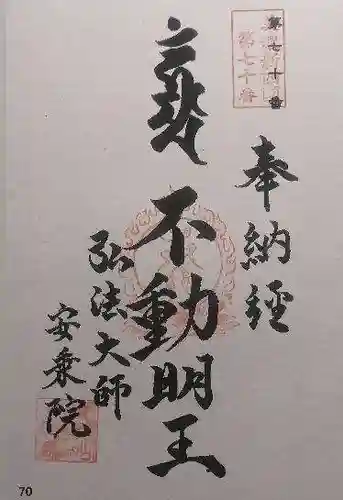 第七十番
奉納経
不動明王
弘法大師
安乗院
70